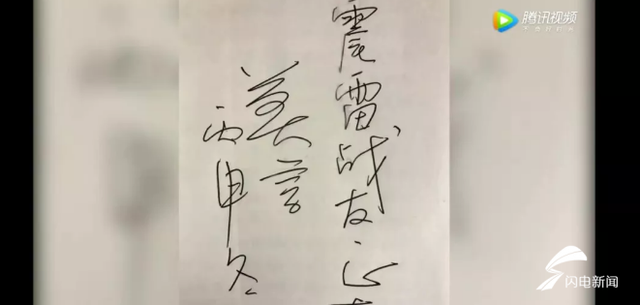 腾讯视频
震雷战友正
莫言
丙申冬
闪电新闻